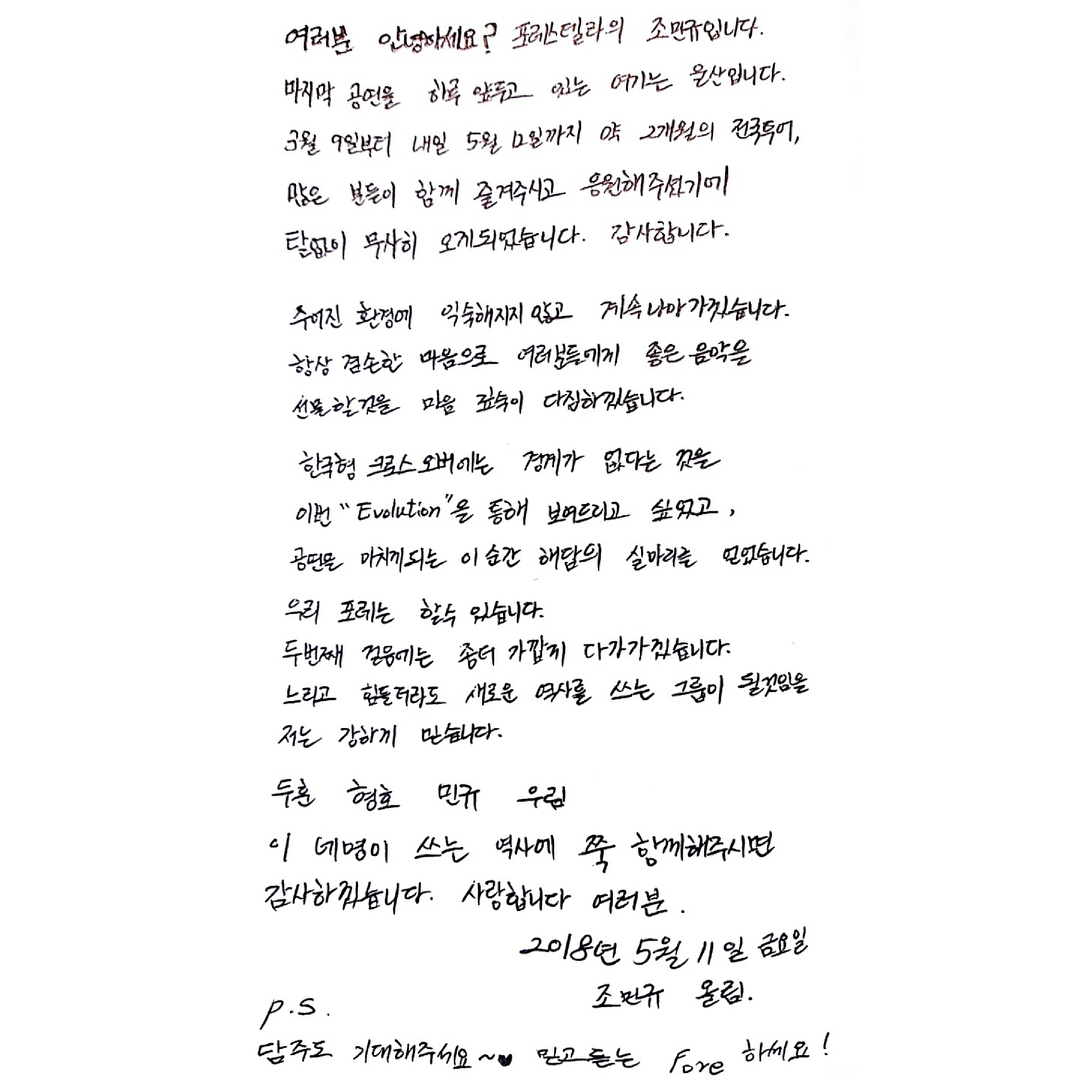 여러분 안녕하세요? 포레스텔라의 조민규입니다.
마지막 공연을 하루 앞두고 있는 여기는 울산입니다.
3월 9일부터 내일 5월 12일까지 약 2개월의 전국투어,
많은 분들이 함께 즐겨주시고 응원해주셨기에
탈없이 무사히 오게되었습니다. 감사합니다.
주어진 환경에 익숙해지지 않고 계속 나아가겠습니다.
항상 겸손한 마음으로 여러분들에게 좋은 음악을
선물할것을 마음 깊숙이 다짐하겠습니다.
한국형 크로스오버에는 경계가 없다는 것을
이번 "Evolution"을 통해 보여드리고 싶었고,
공연을 마치게되는 이 순간 해답의 실마리를 얻었습니다.
우리 포레는 할수 있습니다.
두번째 걸음에는 좀더 가깝게 다가가겠습니다.
느리고 힘들더라도 새로운 역사를 쓰는 그룹이 될것임을
저는 강하게 믿습니다.
두훈 형호 민규 우림
이 네명이 쓰는 역사에 쭉 함께해주시면
감사하겠습니다. 사랑합니다 여러분.
2018년 5월 11일 금요일
조민규 올림.
P.S.
담주도 기대해주세요~♥ 믿고 듣는 Fore 하세요!